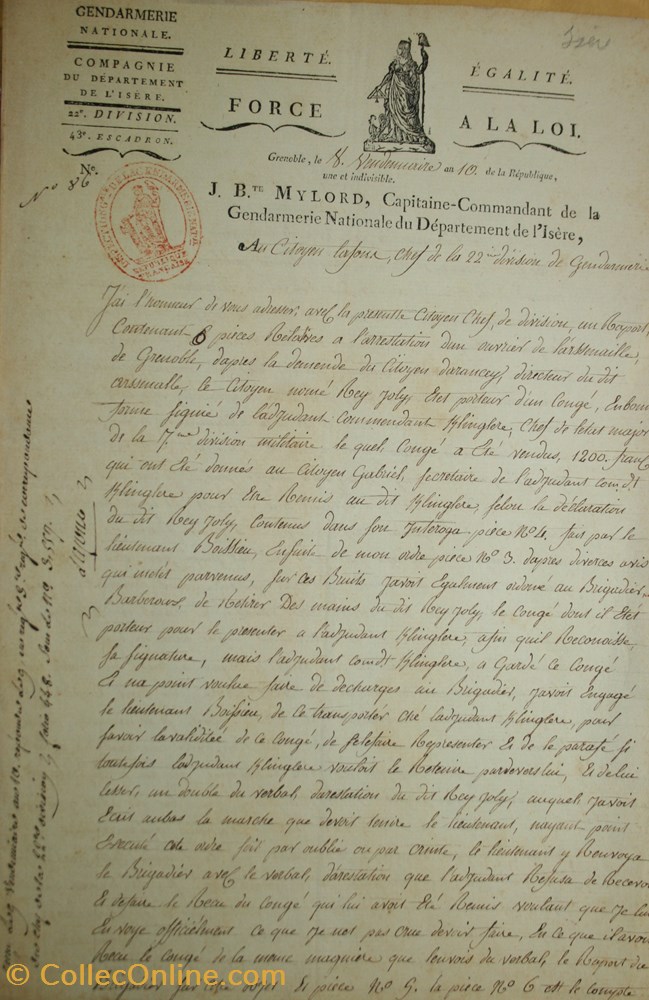 GENDARMERIE
NATIONALE.
COMPAGNIE
DU DÉPARTEMENT
DE L'ISÈRE.
22e. DIVISION.
43e. ESCADRON.
No.
No 86
Isère
LIBERTÉ.
ÉGALITÉ.
FORCE
A LA LOI.
Grenoble, le 8. Vendemiaire an 10e. de la République,
une et indivisible.
J. B.te MYLORD, Capitaine-Commandant de la
Gendarmerie Nationale du Département de l'Isère,
Au Citoyen lafons, chef de la 22me division de Gendarmerie
J'ai l'honneur de vous adresser, avec la presente Citoyen Chef, de division, un Raport,
Contenant 6 pieces Relatives a l'arrestation d'un ouvrier de l'arssenaille,
de Grenoble, dapres la demende du Citoyen durancey, directeur du dit
arssenalle, le Citoyen nomé Rey Joly, Etet porteur d'un Congé, En bonne
forme signié de l'adjudant Commendant Klinglere, Chef de l'etat major
de la 7me division militaire le quel Congé a Eté vendus, 1200. francs
qui ont Eté donnés au Citoyen Gabriel, Secretaire de l'adjudant comdt
Klinglere pour Etre Remis au dit Klinglere, selon la déclaration
du dit Rey Joly, Contenus dans son Interoga piece No 4. fait par le
lieutenant Boissieu, Ensuite de mon ordre piece No 3. dapres diverces avis
qui m'etet parvenus, sur ces Bruits J'avoit Egalement ordoné au Brigadier
Barberoux, de Retirer Des mains du dit Rey Joly, le congé dont il Etet
porteur pour le presenter a l'adjudant Klinglere, afin quil Reconaisse,
sa signature, mais l'adjudant comdt Klinglere, a Gardé ce Congé
Et na point voulue faire de decharges au Brigadier, J'avoit Engagé
le lieutenant Boissieu, de ce transporter ché l'adjudant Klinglere, pour
savoir la validitée de ce congé, de se le faire Representer Et de le parafé si
toutefois l'adjudant Klinglere vouloit le Retenire pardevers lui, Et de lui
lesser, un double du verbal, darestation du dit Rey Joly, auquel J'avoit
Ecrit au bas la marche que devoit tenire le lieutenant, nayant point
Executé cete ordre soit par oublie ou par crinte, le lieutenant y Renvoya
le Brigadier avec le verbal, darestation que l'adjudant Refusa de Recevoir
Et de faire le Recu du congé qui lui avoit Eté Remis voulant que Je lui
Envoye officielment ce que Je nes pas crue devoir faire, En ce que il avoit
Recu le congé de la meme magniere que l'envois du verbal, le Raport du
Brigadier piece No 5. la piece No 6 est le compte
© CollecOnline.com